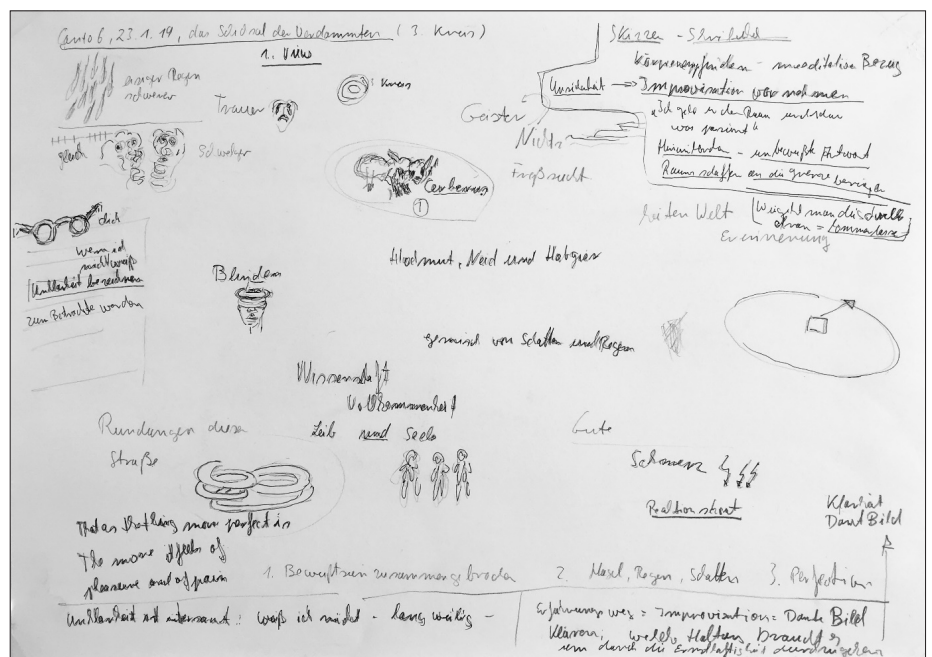 Canto 6, 23.1.19, das Schicksal der Verdammten (3. Kreis)
1. View
ewiger Regen
schwerer
Trauer
Kreis
gleich
Schweber
Cerberus
1
Geister
Nichts
Freßsucht
Skizzen -
Körperempfinden - meditative Bezug
Unsicherheit => Improvisation wahrnehmen
"Ich gehe in den Raum und schau
was passiert"
- unbewußte Antwort
Raum schaffen an die Grenze bringen
heiten Welt
Erinnerung
dich
wenn ich
nicht weiß
Unklarheit bezeichnen
zum Betrachte werden
Blinden
Hochmut, Neid und Habgier
gemisch von Schatten und Regen
Wissenschaft
Vollkommenheit
Leib und Seele
Rundungen dieser
Straße
Gute
Schmerz
Reaktion
Klarheit
Dant Bild
That as the thing more perfect is
The more it feels of
pleasure and of pain
1. Bewußtsein zusammengebrochen
2. Hagel, Regen, Schatten
3. Perfection
Unklarheit ist interessant: weiß ich nicht - langweilig -
Erfahrungsweg = Improvisation = Dante Bild
Klären, welche Haltung braucht es
um durch die Ernsthaftigkeit